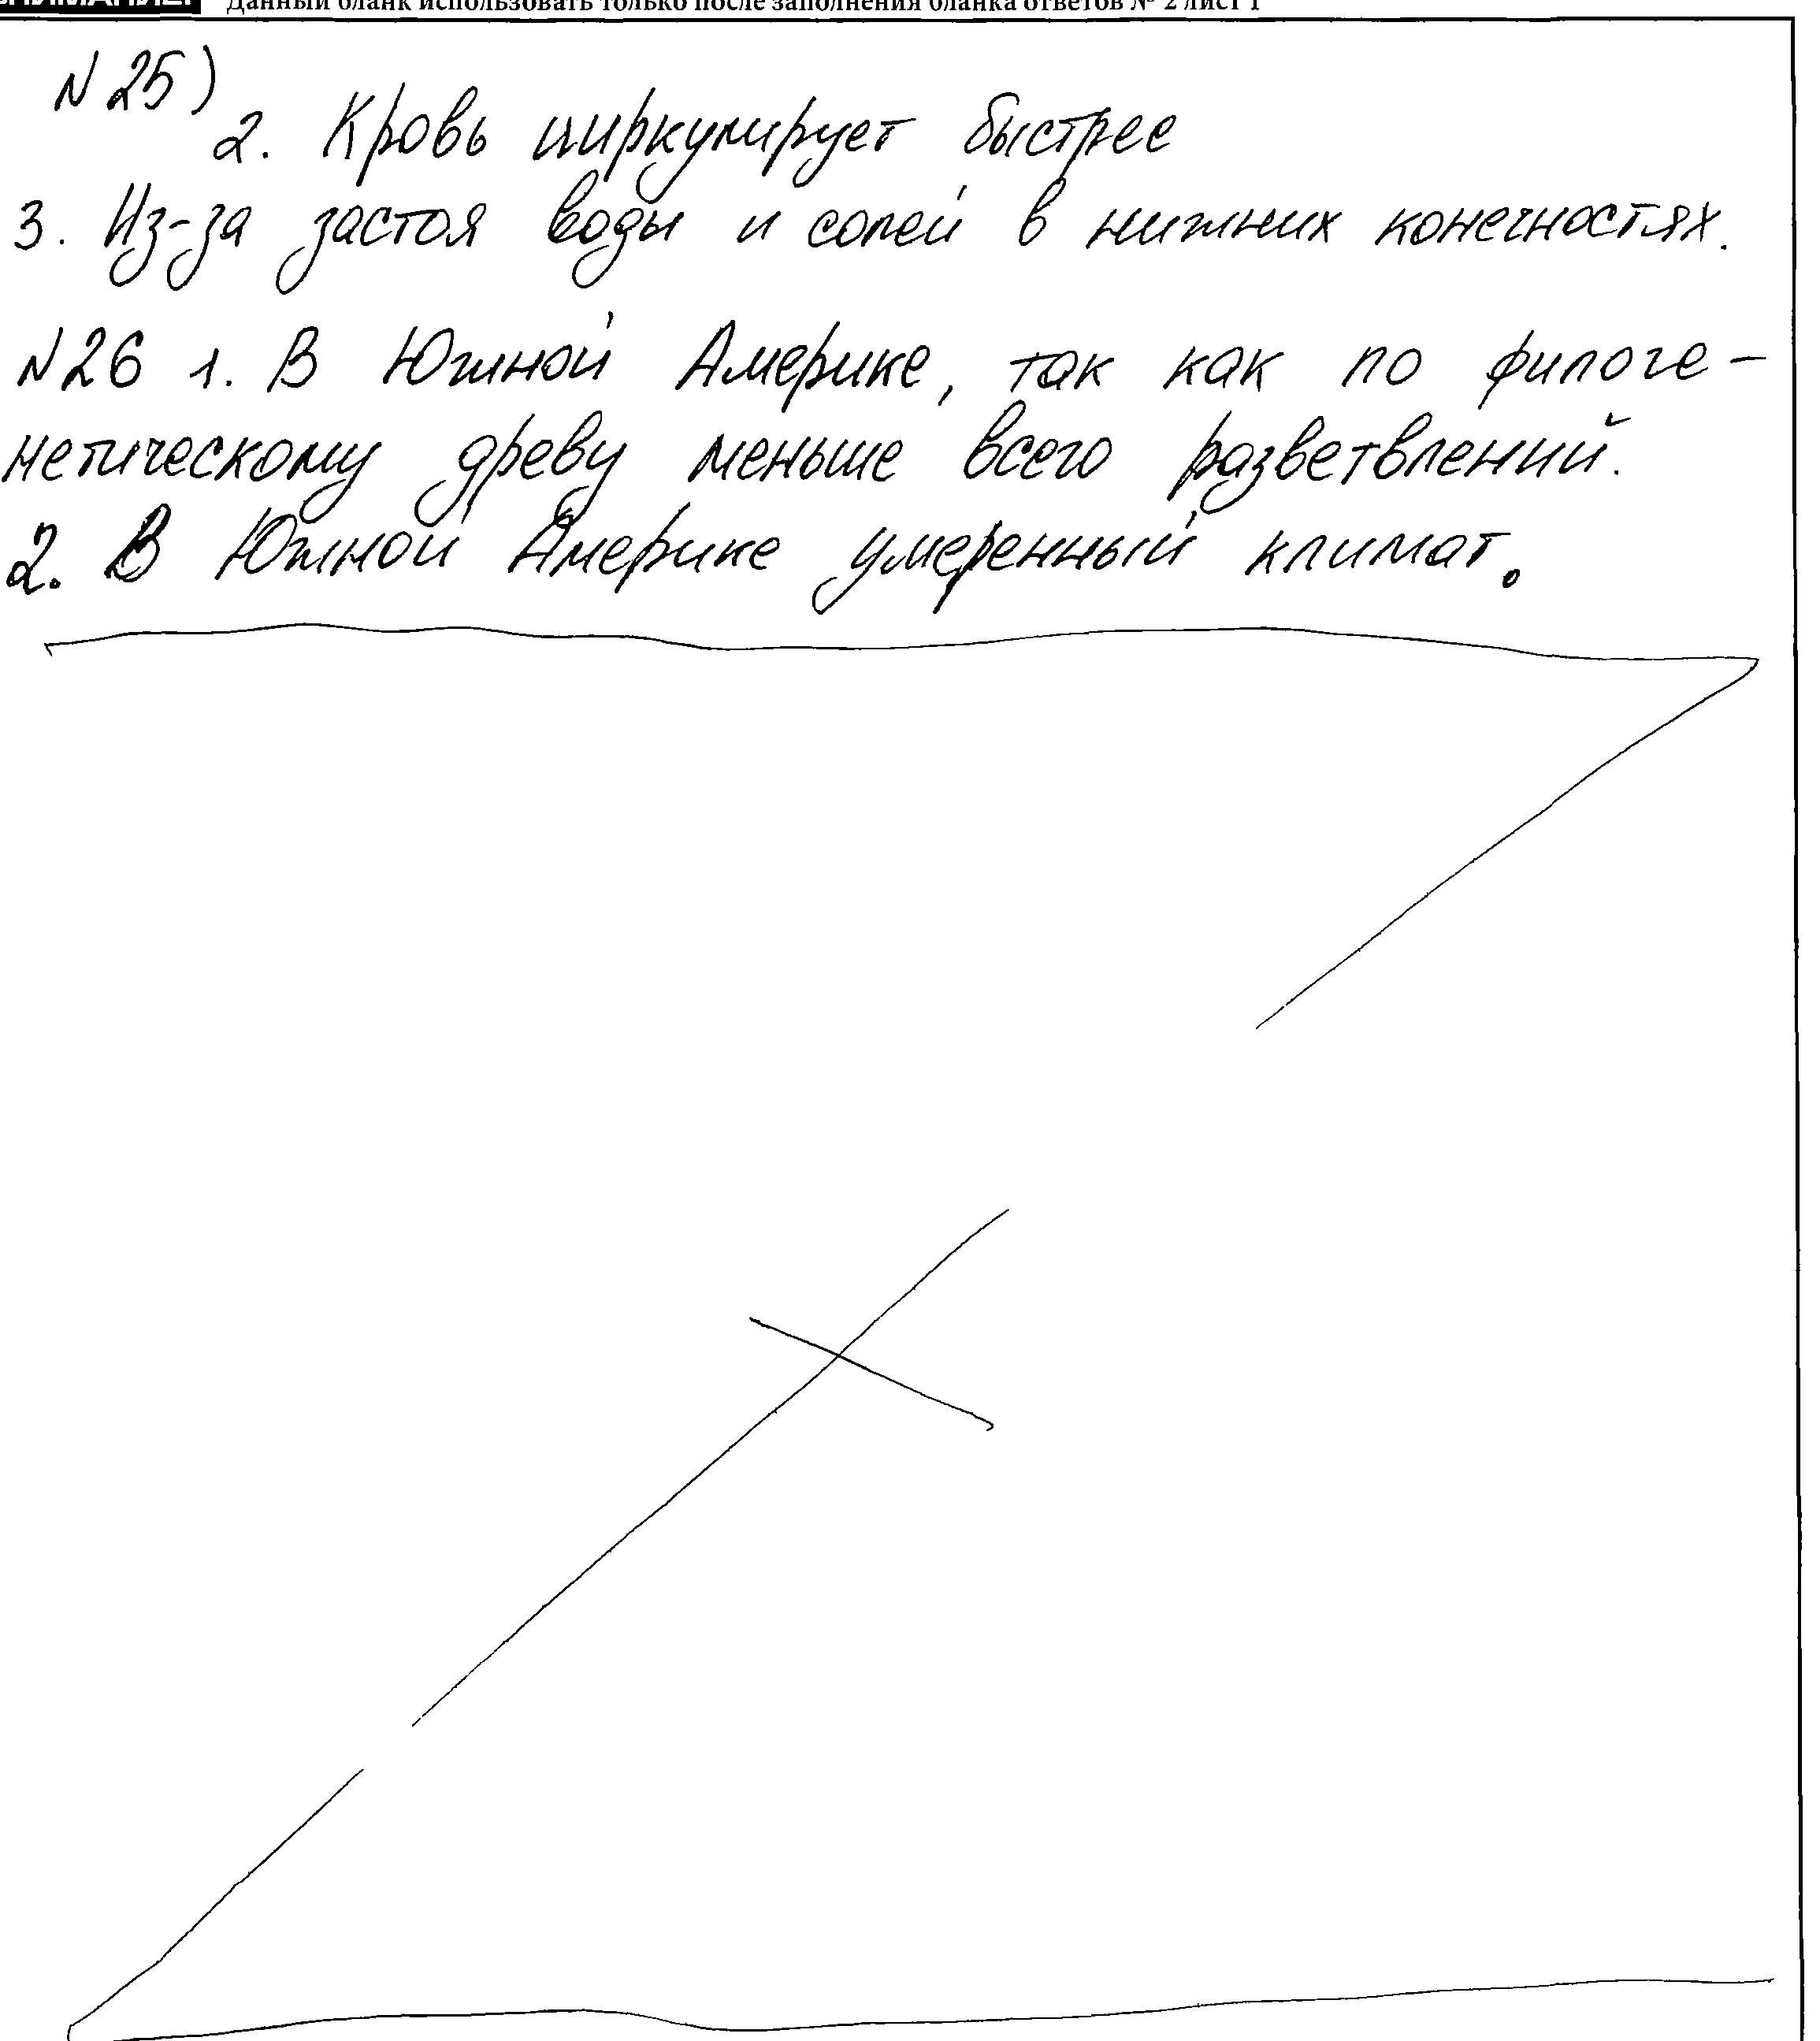 ВНИМАНИЕ! Данный бланк использовать только после заполнения бланка ответов № 2 лист 1
N 25)
2. Кровь циркулирует быстрее
3. Из-за застоя воды и солей в нижних конечностях.
N26 1. В Южной Америке, так как по филоге-
нетическому древу меньше всего разветвлений.
2. В Южной Америке умеренный климат.